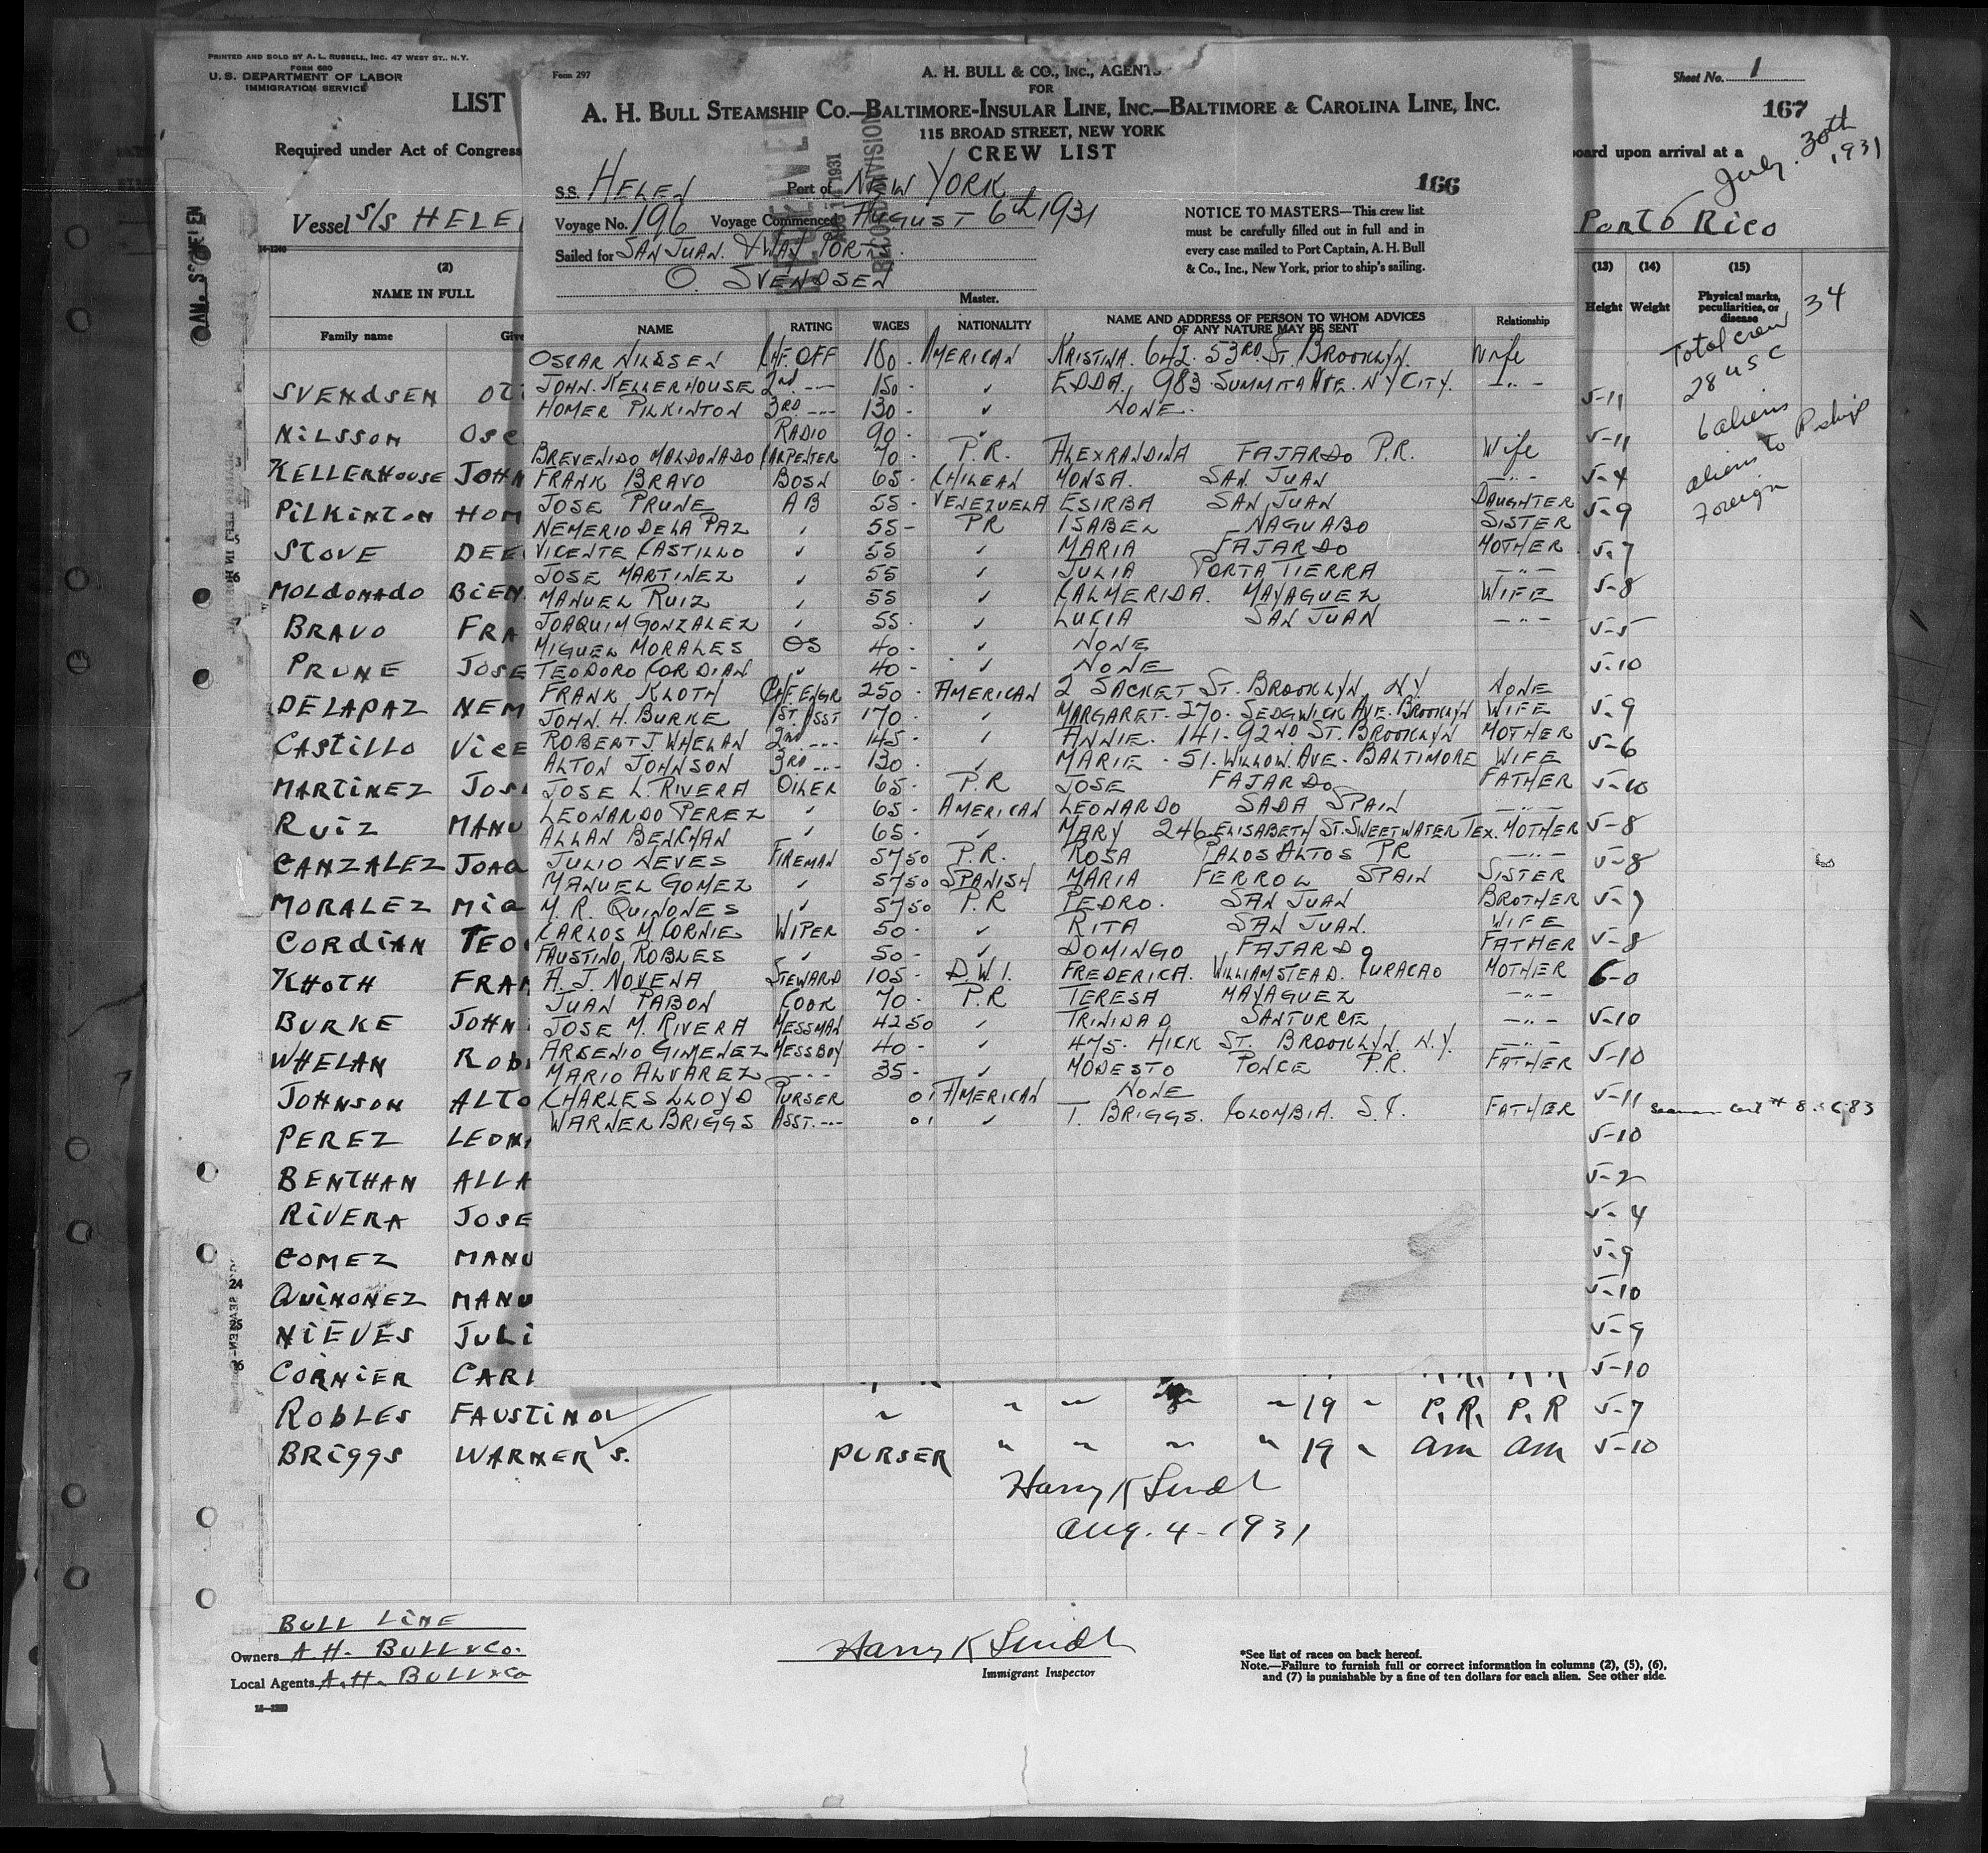 PRINTED AND SOLD BY A. L. RUSSELL, INC. 47 WEST ST., N.Y.
FORM 680
U. S. DEPARTMENT OF LABOR
IMMIGRATION SERVICE
LIST
Required under Act of Congress
Vessel S/S HELE
(2)
NAME IN FULL
Family name Give
SVENDSEN
NILSSON OSC
KELLERHOUSE JOHN
PILKINTON HOM
STOVE DEE
MOLDONADO BIEN
BRAVO FRA
PRUNE JOSE
DELAPAZ NEM
CASTILLO VICE
MARTINEZ JOS
RUIZ MANU
GANZALEZ JOAQ
MORALEZ MIG
CORDIAN TEO
KHOTH FRAN
BURKE JOHN
WHELAN ROB
JOHNSON ALTO
PEREZ LEON
BENTHAN ALLA
RIVERA JOSE
GOMEZ MANU
24 QUINONEZ MANU
25 NIEVES JULI
26 CORNIER CARL
ROBLES FAUSTINO " " " " 19 " P.R. P.R 5-7
BRIGGS WARNER S. PURSER " " " " 19 " am am 5-10
Harry K Lindt
Aug. 4-1931
BULL LINE
Owners A.H. BULL & CO.
Local Agents A.H. BULL & CO
Harry K Lindt
Immigrant Inspector
*See list of races on back hereof.
Note.—Failure to furnish full or correct information in columns (2), (5), (6),
and (7) is punishable by a fine of ten dollars for each alien. See other side.
Form 297
A. H. BULL & CO., INC., AGENTS
FOR
A. H. BULL STEAMSHIP CO.—BALTIMORE-INSULAR LINE, INC.—BALTIMORE & CAROLINA LINE, INC.
115 BROAD STREET, NEW YORK
CREW LIST
166
S.S. HELEN Port of NEW YORK
Voyage No. 196 Voyage Commenced AUGUST 6th 1931
Sailed for SAN JUAN & WAY PORTS.
O. SVENDSEN
Master.
NOTICE TO MASTERS—This crew list
must be carefully filled out in full and in
every case mailed to Port Captain, A. H. Bull
& Co., Inc., New York, prior to ship's sailing.
NAME RATING WAGES NATIONALITY NAME AND ADDRESS OF PERSON TO WHOM ADVICES OF ANY NATURE MAY BE SENT Relationship
OSCAR NILSSEN CHF. OFF 180- AMERICAN KRISTINA. 642. 53RD. ST. BROOKLYN. Wife
JOHN. KELLERHOUSE 2nd --- 150- ✓ EDDA, 983 SUMMIT AVE. NY CITY. -"-
HOMER PILKINTON 3RD --- 130- ✓ NONE.
RADIO 90- ✓
BREVENIDO MALDONADO CARPENTER 70- P.R. ALEXRANDINA FAJARDO P.R. Wife
FRANK BRAVO BOSN 65- CHILEAN MONSA. SAN JUAN -"-
JOSE PRUNE AB 55- VENEZUELA ESIRBA SAN JUAN DAUGHTER
NEMERIO DE LA PAZ ✓ 55- PR ISABEL NAGUABO SISTER
VICENTE CASTILLO ✓ 55 ✓ MARIA FAJARDO MOTHER
JOSE MARTINEZ ✓ 55 ✓ JULIA PORTA TIERRA -"-
MANUEL RUIZ ✓ 55 ✓ CALMERIDA. MAYAGUEZ WIFE
JOAQUIM GONZALEZ ✓ 55- ✓ LUCIA SAN JUAN -"-
MIGUEL MORALES OS 40- ✓ NONE
TEODORO CORDIAN ✓ 40- ✓ NONE
FRANK KLOTH CHF ENGR 250- AMERICAN 2 SACKET ST. BROOKLYN NY. NONE
JOHN. H. BURKE 1ST. ASST 170- ✓ MARGARET. 270. SEDGWICK AVE. BROOKLYN WIFE
ROBERT J. WHELAN 2nd --- 145- ✓ ANNIE. 141. 92ND ST. BROOKLYN MOTHER
ALTON JOHNSON 3RD --- 130- ✓ MARIE - 51. WILLOW AVE. BALTIMORE WIFE
JOSE L. RIVERA OILER 65- P.R JOSE FAJARDO FATHER
LEONARDO PEREZ ✓ 65- AMERICAN LEONARDO SADA SPAIN -"-
ALLAN BENCHAN ✓ 65- ✓ MARY 246 ELISABETH ST. SWEETWATER TEX. MOTHER
JULIO NEVES FIREMAN 5750 P.R. ROSA PALOS ALTOS PR -"-
MANUEL GOMEZ ✓ 5750 SPANISH MARIA FERROL SPAIN SISTER
M. R. QUINONES ✓ 5750 P.R PEDRO. SAN JUAN BROTHER
CARLOS M CORNIE WIPER 50- ✓ RITA SAN JUAN. WIFE
FAUSTINO ROBLES ✓ 50- ✓ DOMINGO FAJARDO FATHER
A. J. NOVENA STEWARD 105- D.W.I. FREDERICA. WILLIAMSTEAD. CURACAO MOTHER
JUAN PABON COOK 70- P.R TERESA MAYAGUEZ -"-
JOSE M. RIVERA MESSMAN 4250 ✓ TRINIDAD SANTURCE -"-
ARSENIO GIMENEZ MESSBOY 40- ✓ 475. HICK ST. BROOKLYN N.Y. -"-
MARIO ALVAREZ --- 35- ✓ MODESTO PONCE P.R. FATHER
CHARLES LLOYD PURSER 01 AMERICAN NONE
WARNER BRIGGS ASST. --- 01 ✓ T. BRIGGS. COLOMBIA. S.C. FATHER
Sheet No. 1
167
oard upon arrival at a
July. 30th
1931
Porto Rico
(13) (14) (15)
Height Weight Physical marks, peculiarities, or disease
34
Total crew
28 USC
6 aliens
aliens to P ship
Foreign
5-11
5-11
5-4
5-9
5-7
5-8
5-5
5-10
5-9
5-6
5-10
5-8
5-8
5-7
5-8
6-0
5-10
5-10
5-11
5-10
5-2
5-4
5-9
5-10
5-9
5-10